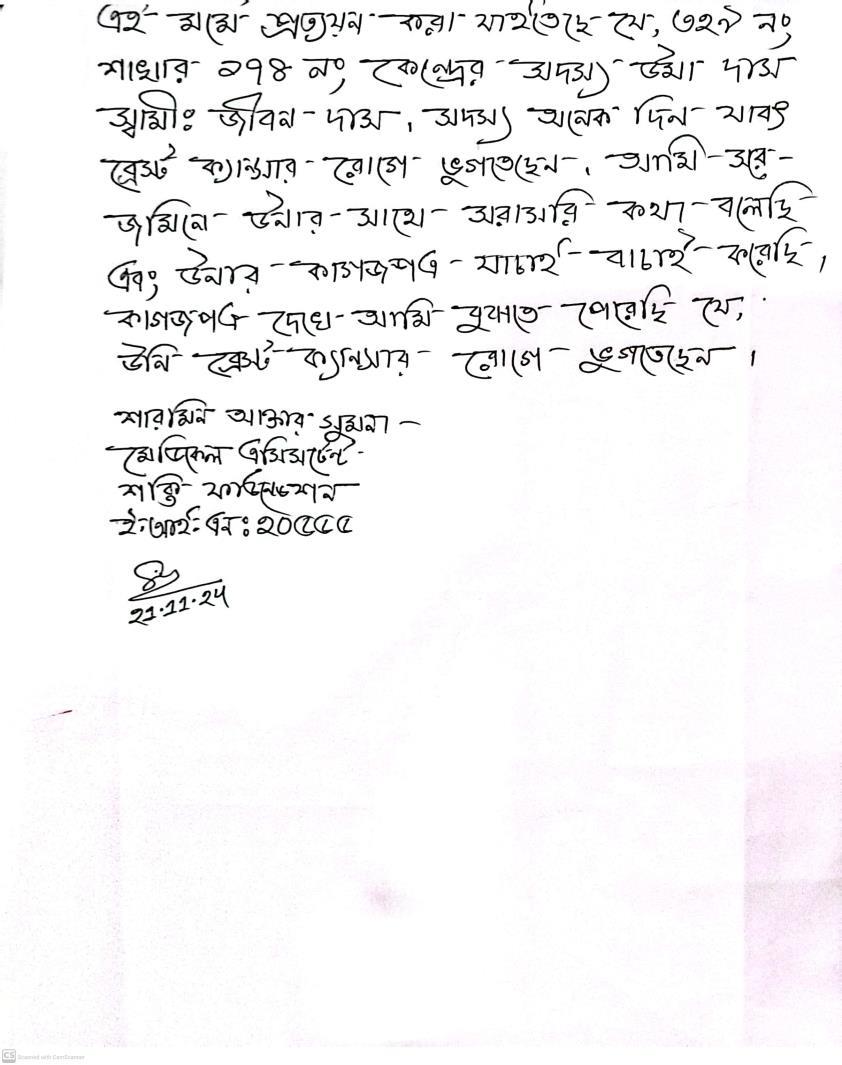 এই মর্মে প্রত্যয়ন করা যাইতেছে যে, ৩২৯ নং
শাখার ২৭৪ নং কেন্দ্রের সদস্য উমা দাস
স্বামীঃ জীবন দাস, সদস্য অনেক দিন যাবৎ
ব্রেস্ট ক্যান্সার রোগে ভুগতেছেন, আমি সরে-
জমিনে উনার সাথে সরাসরি কথা বলেছি
এবং উনার কাগজপত্র যাচাই বাচাই করেছি,
কাগজপত্র দেখে আমি বুঝতে পেরেছি যে,
উনি ব্রেস্ট ক্যানসার রোগে ভুগতেছেন ।
শারমিন আক্তার সুমনা
মেডিকেল এসিসটেন্ট
শক্তি ফাউন্ডেশন
ই.আই.এনঃ ২০৫৫৫
21.11.24
CS Scanned with CamScanner